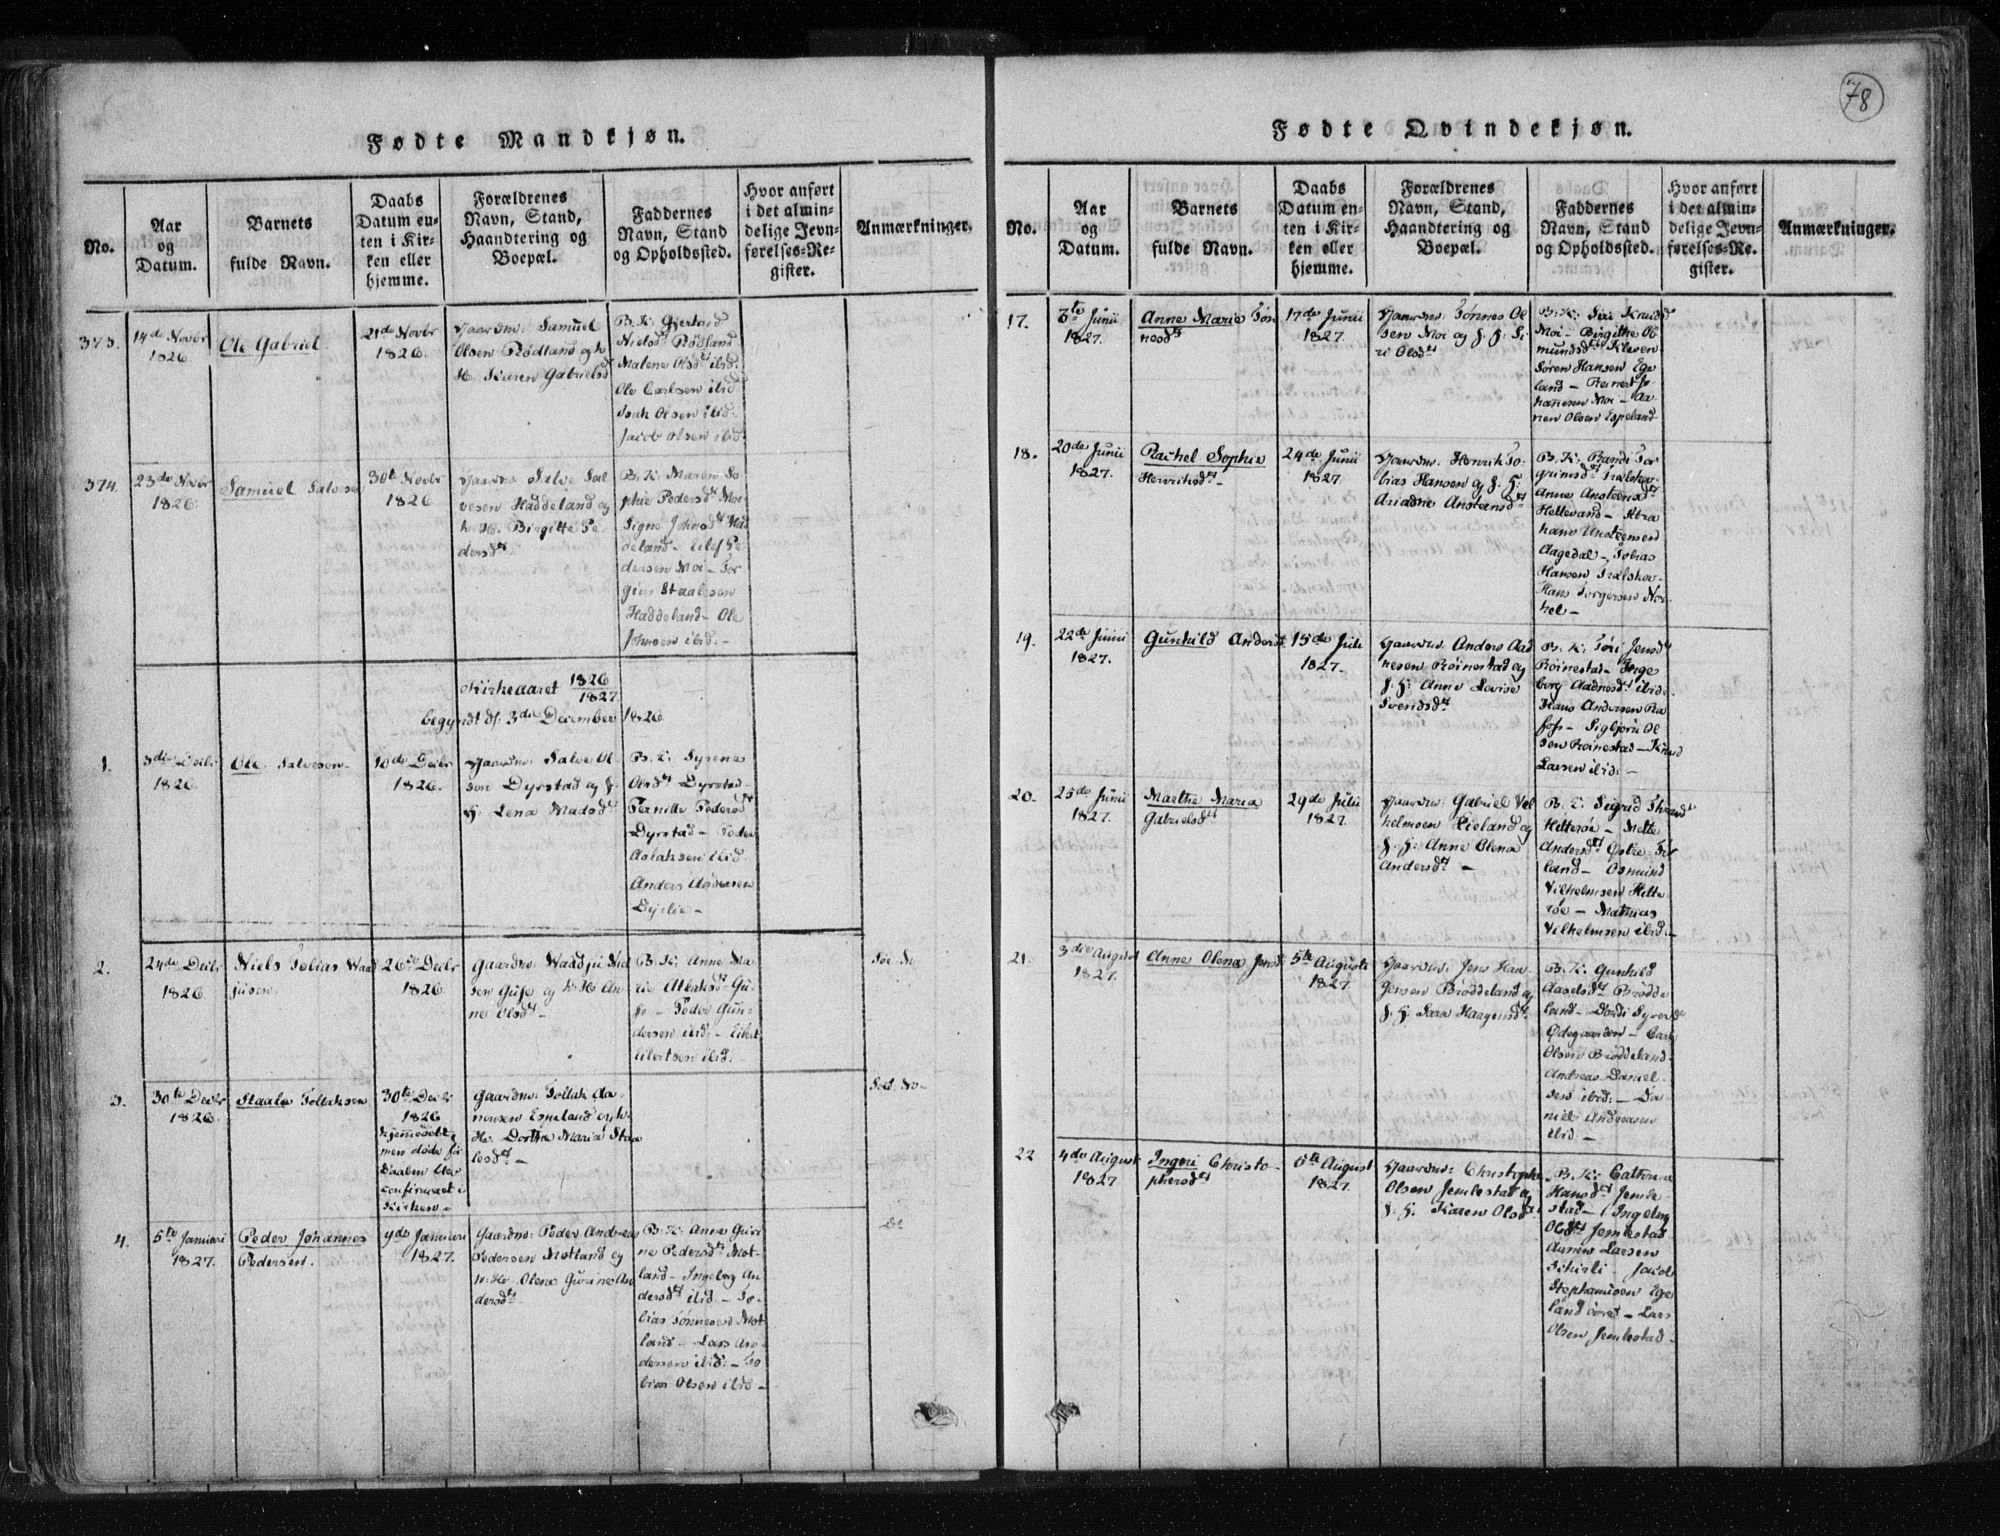 78
Fødte Mandkjøn.
No.
Aar
og
Datum.
Barnets
fulde Navn.
Daabs
Datum en-
ten i Kir-
ken eller
hjemme.
Forældrenes
Navn, Stand,
Haandtering og
Boepæl.
Faddernes
Navn, Stand
og Opholdssted.
Hvor anført
i det almin-
delige Jevn-
førelses-Re-
gister.
Anmærkninger.
373.
14de Novbr
1826
Ole Gabriel
21de Novbr
1826.
Gaardm: Samuel
Olsen Rødland og h
H. Karen Gabrielsd
B. K: Gjertrud
Nielsd Rødland
Malene Olsdt ibid.
Ole Carlsen ibid
Isak Olsen ibid.
Jacob Olsen ibid.
374.
23de Novbr
1826.
Samuel Salvesen
30te Novbr
1826
Gaardm Salve Sal
vesen Haddeland og
h. H. Birgitte Pe
dersdt
B. K. Maren So
phie Pedersdt Moi
Signe Johnsdt Had
deland - Eilef Pe
dersen Moi - Tor
gius Staalesen
Haddeland - Ole
Johnsen ibid. -
Kirkeaaret 1826
1827
begyndt d: 3die December 1826
1.
3die Decbr
1826.
Ole Salvesen
10de Decbr
1826.
Gaardm: Salve Ol
sen Dyrstad og h.
H. Lena Madsdt
B. K. Syrene
Olsdt Dyrstad
Pernille Pedersdt
Dyrstad - Peder
Aslaksen ibid
Anders Andersen
Dyrlie -
2.
24de Decbr
1826
Niels Tobias Waad
jusen.
26de Decbr
1826.
Gaardm: Waadju Niel
sen Guse og h. H. An
ne Olsdt -
B. K. Anne Ma
rie Aslaksdt Gu
se - Peder Gun
dersen ibid: - Eilert
Eilertsen ibid: -
3.
30te Decbr
1826.
Staale Tollaksen
30te Decbr
1826
hjemmedøbt,
men døde før
Daaben blev
confirmeret i
Kirken -
Gaardm: Tollak Aa
nensen Espeland og h.
H. Dorthe Maria Staa
lesdt -
4.
5te Januari
1827.
Peder Johannes
Pedersen.
7de Januari
1827.
Gaardm: Peder Andreas
Pedersen Motland og
h. H. Olene Gurine An
dersdt
B. K. Anne Guri
ne Pedersdt Mot
land - Ingeborg An
dersdt ibid. - To
bias Tønnesen Mot
land - Lars An
dersen ibid: - To
bias Olsen ibid -
Fødte Qvindekjøn.
No.
Aar
og
Datum.
Barnets
fulde Navn.
Daabs
Datum en-
ten i Kir-
ken eller
hjemme.
Forældrenes
Navn, Stand,
Haandtering og
Boepæl.
Faddernes
Navn, Stand
og Opholdssted.
Hvor anført
i det almin-
delige Jevn-
førelses-Re-
gister.
Anmærkninger.
17.
Junii
1827.
Anne Marie Tøn
nesdt
17de Junii
1827.
Gaardm: Tønnes Ol
sen Moi og h. H: Si
ri Olsdt
B. K: Siri Knudsd
Moi - Birgithe Os
mundsdt Kleven
Søren Hansen Ege
land - Reinert Jo
hannesen Moi - Aa
nen Olsen Espeland
18.
20de Junii
1827.
Rachel Sophie
Henrichsdt -
24de Junii
1827.
Gaardm: Henrik To:
bias Hansen og h. H:
Ariadne Anstensdt
B. K: Tor
grimsdt Trælskov -
Anne Anstensdt
Hellevand - Abra
ham Anstensen
Aagedal - Tobias
Hansen Trælskov -
Hans Torgersen
19.
22de Junii
1827.
Gunhild Andersdt
15de Juli
1827.
Gaardm: Anders Aad
nesen Røinestad og
h. H: Anne Lovise
Svendsdt
B. K. Tøri Jensdt
Røinestad - Inge
borg Aadnesdt ibid:
Hans Andersen Ra
foss - Sigbjørn Ol
sen Røinestad - Knud
Larsen ibid: -
20.
25de Junii
1827.
Marthe Maria
Gabrielsdt
29de Julii
1827.
Gaardm: Gabriel Vil
helmsen Lieland og
h. H: Anne Olena
Andersdt -
B. K. Sigrid
Hitterøe - Mette
Andersdt Østre
land - Osmund
Vilhelmsen Hitte
røe - Mathias
Vilhelmsen ibid: -
21.
3die August
1827.
Anne Olena Jensdt
5te Augusti
1827.
Gaardm: Jens Haa
gensen Brøddeland og
h. H. Sara Haagensdt
B. K. Gunhild
Brødde
land - Dordi Syversdt
Ødegaarden - Carl
Olsen Brøddeland -
Andreas Daniel
sen ibid: - Da
niel Andreasen
ibid -
22
4de August
1827
Ingeri Christo -
phersdt
August
1827.
Gaardm: Christopher
Olsen Jemlestad og
h. H. Karen Olsdt
B. K: Cathrine
Hansdt Jemle
stad - Ingeborg
Olsdt Jemlestad
Aanen Larsen
Jacob
Stephansen Ege
land - Lars
Olsen Jemlestad -